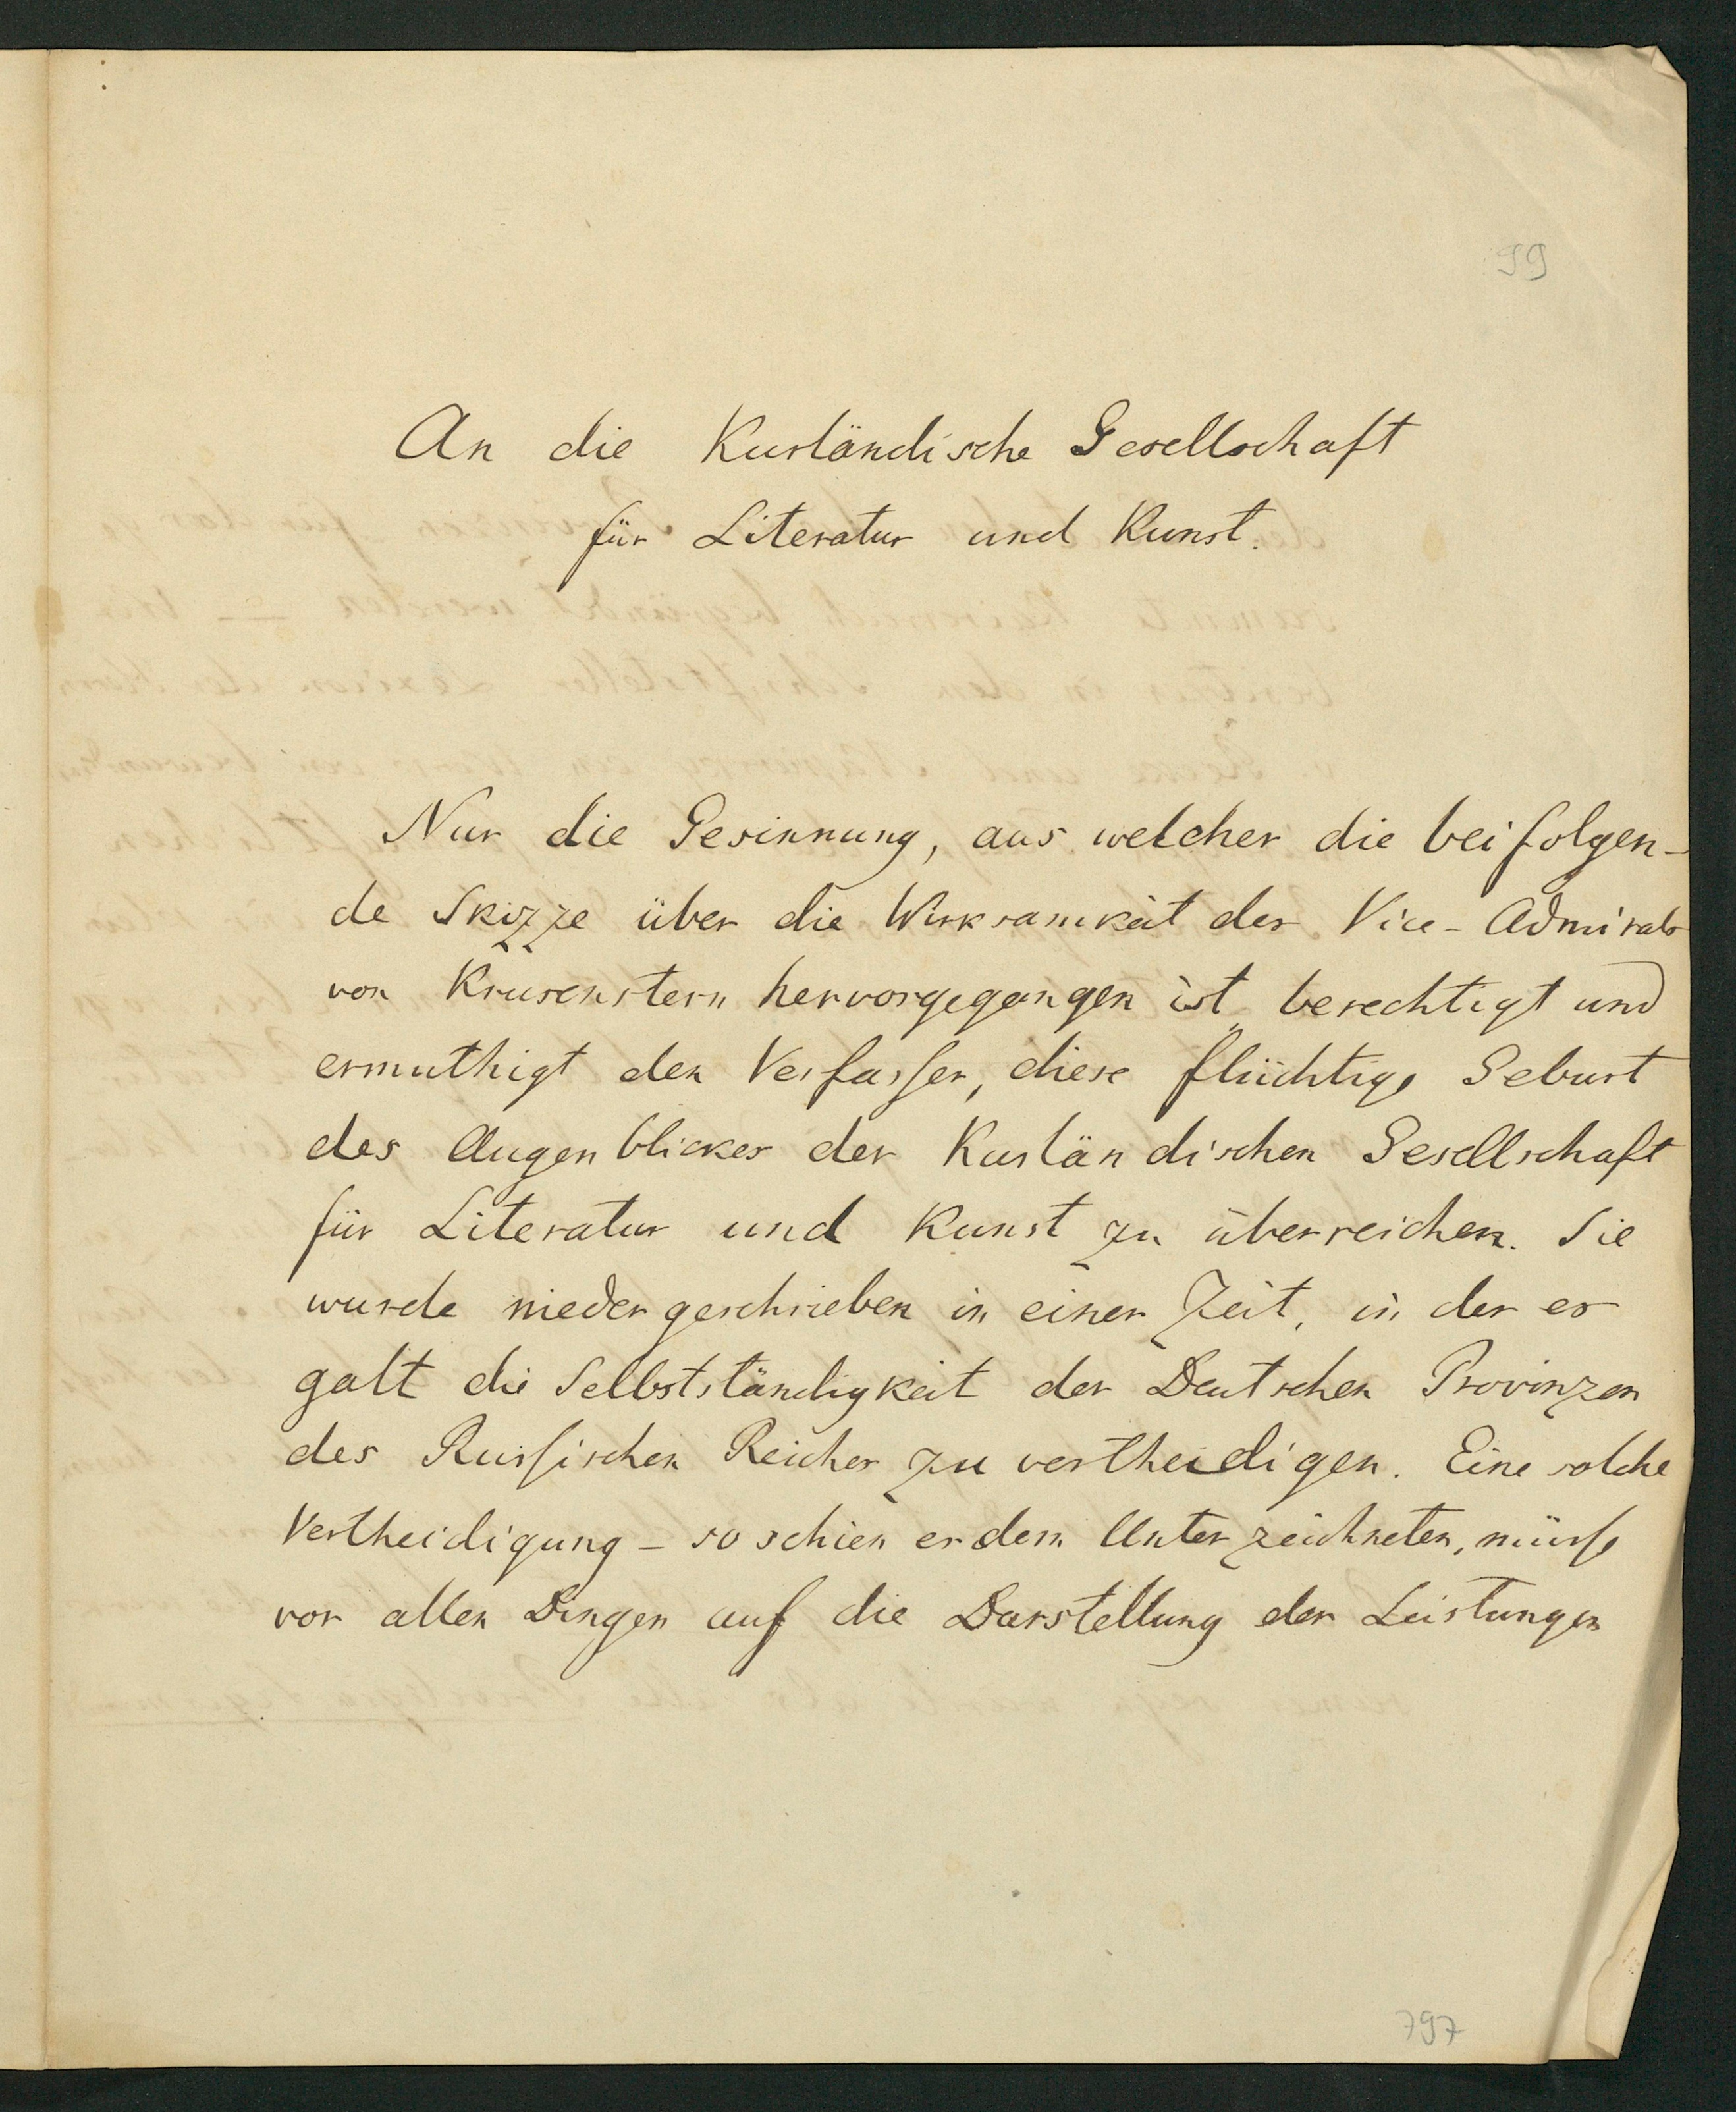 99
An die Kurländische Gesellschaft
für Literatur und Kunst.
Nur die Gesinnung, aus welcher die beifolgen-
de Skizze über die Wirksamkeit des Vice-Admirals
von Krusenstern hervorgegangen ist, berechtigt und
ermuthigt den Verfasser, diese flüchtige Geburt
des Augenblickes der Kurländischen Gesellschaft
für Literatur und Kunst zu überreichen. Sie
wurde niedergeschrieben in einer Zeit, in der es
galt die Selbstständigkeit der Deutschen Provinzen
des Russischen Reiches zu vertheidigen. Eine solche
Vertheidigung - so schien es dem Unterzeichneten, müsse
vor allen Dingen auf die Darstellung der Leistungen
797